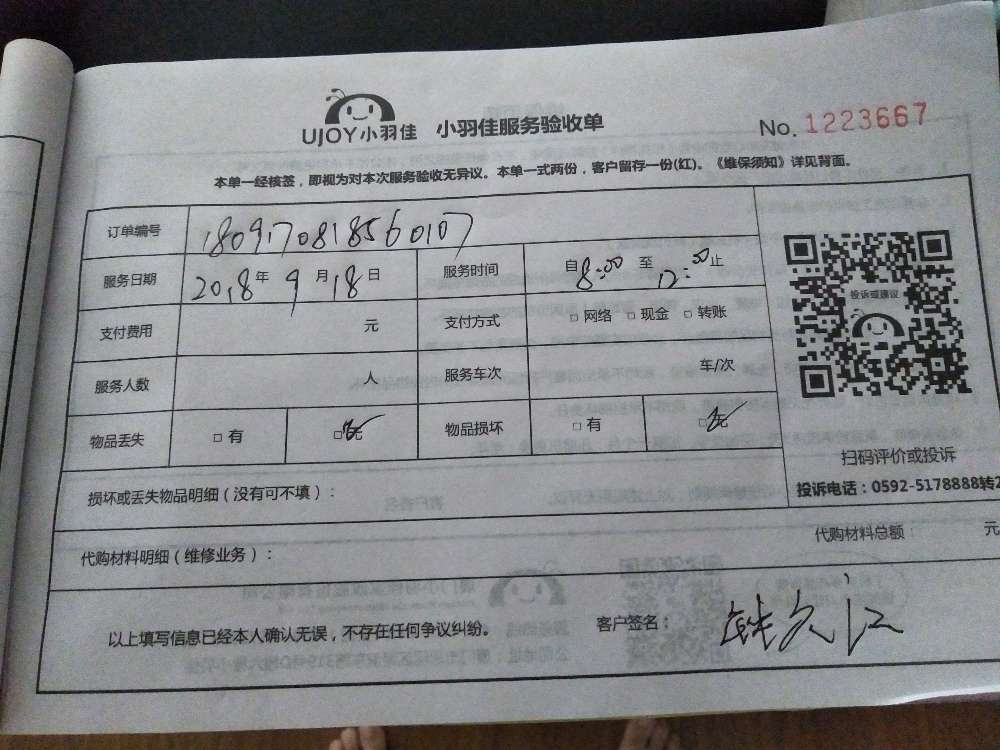 UJOY小羽佳 小羽佳服务验收单 No. 1223667
本单一经核签，即视为对本次服务验收无异议。本单一式两份，客户留存一份(红)。《维保须知》详见背面。
订单编号 1809170818560107
服务日期 2018年9月18日 服务时间 自8:00至12:00止
支付费用 元 支付方式 □ 网络 □ 现金 □ 转账
服务人数 人 服务车次 车/次
物品丢失 □ 有 □ 无 物品损坏 □ 有 □ 无
投诉或建议
扫码评价或投诉
投诉电话：0592-5178888转2
损坏或丢失物品明细（没有可不填）：
代购材料明细（维修业务）： 代购材料总额： 元
以上填写信息已经本人确认无误，不存在任何争议纠纷。 客户签名：